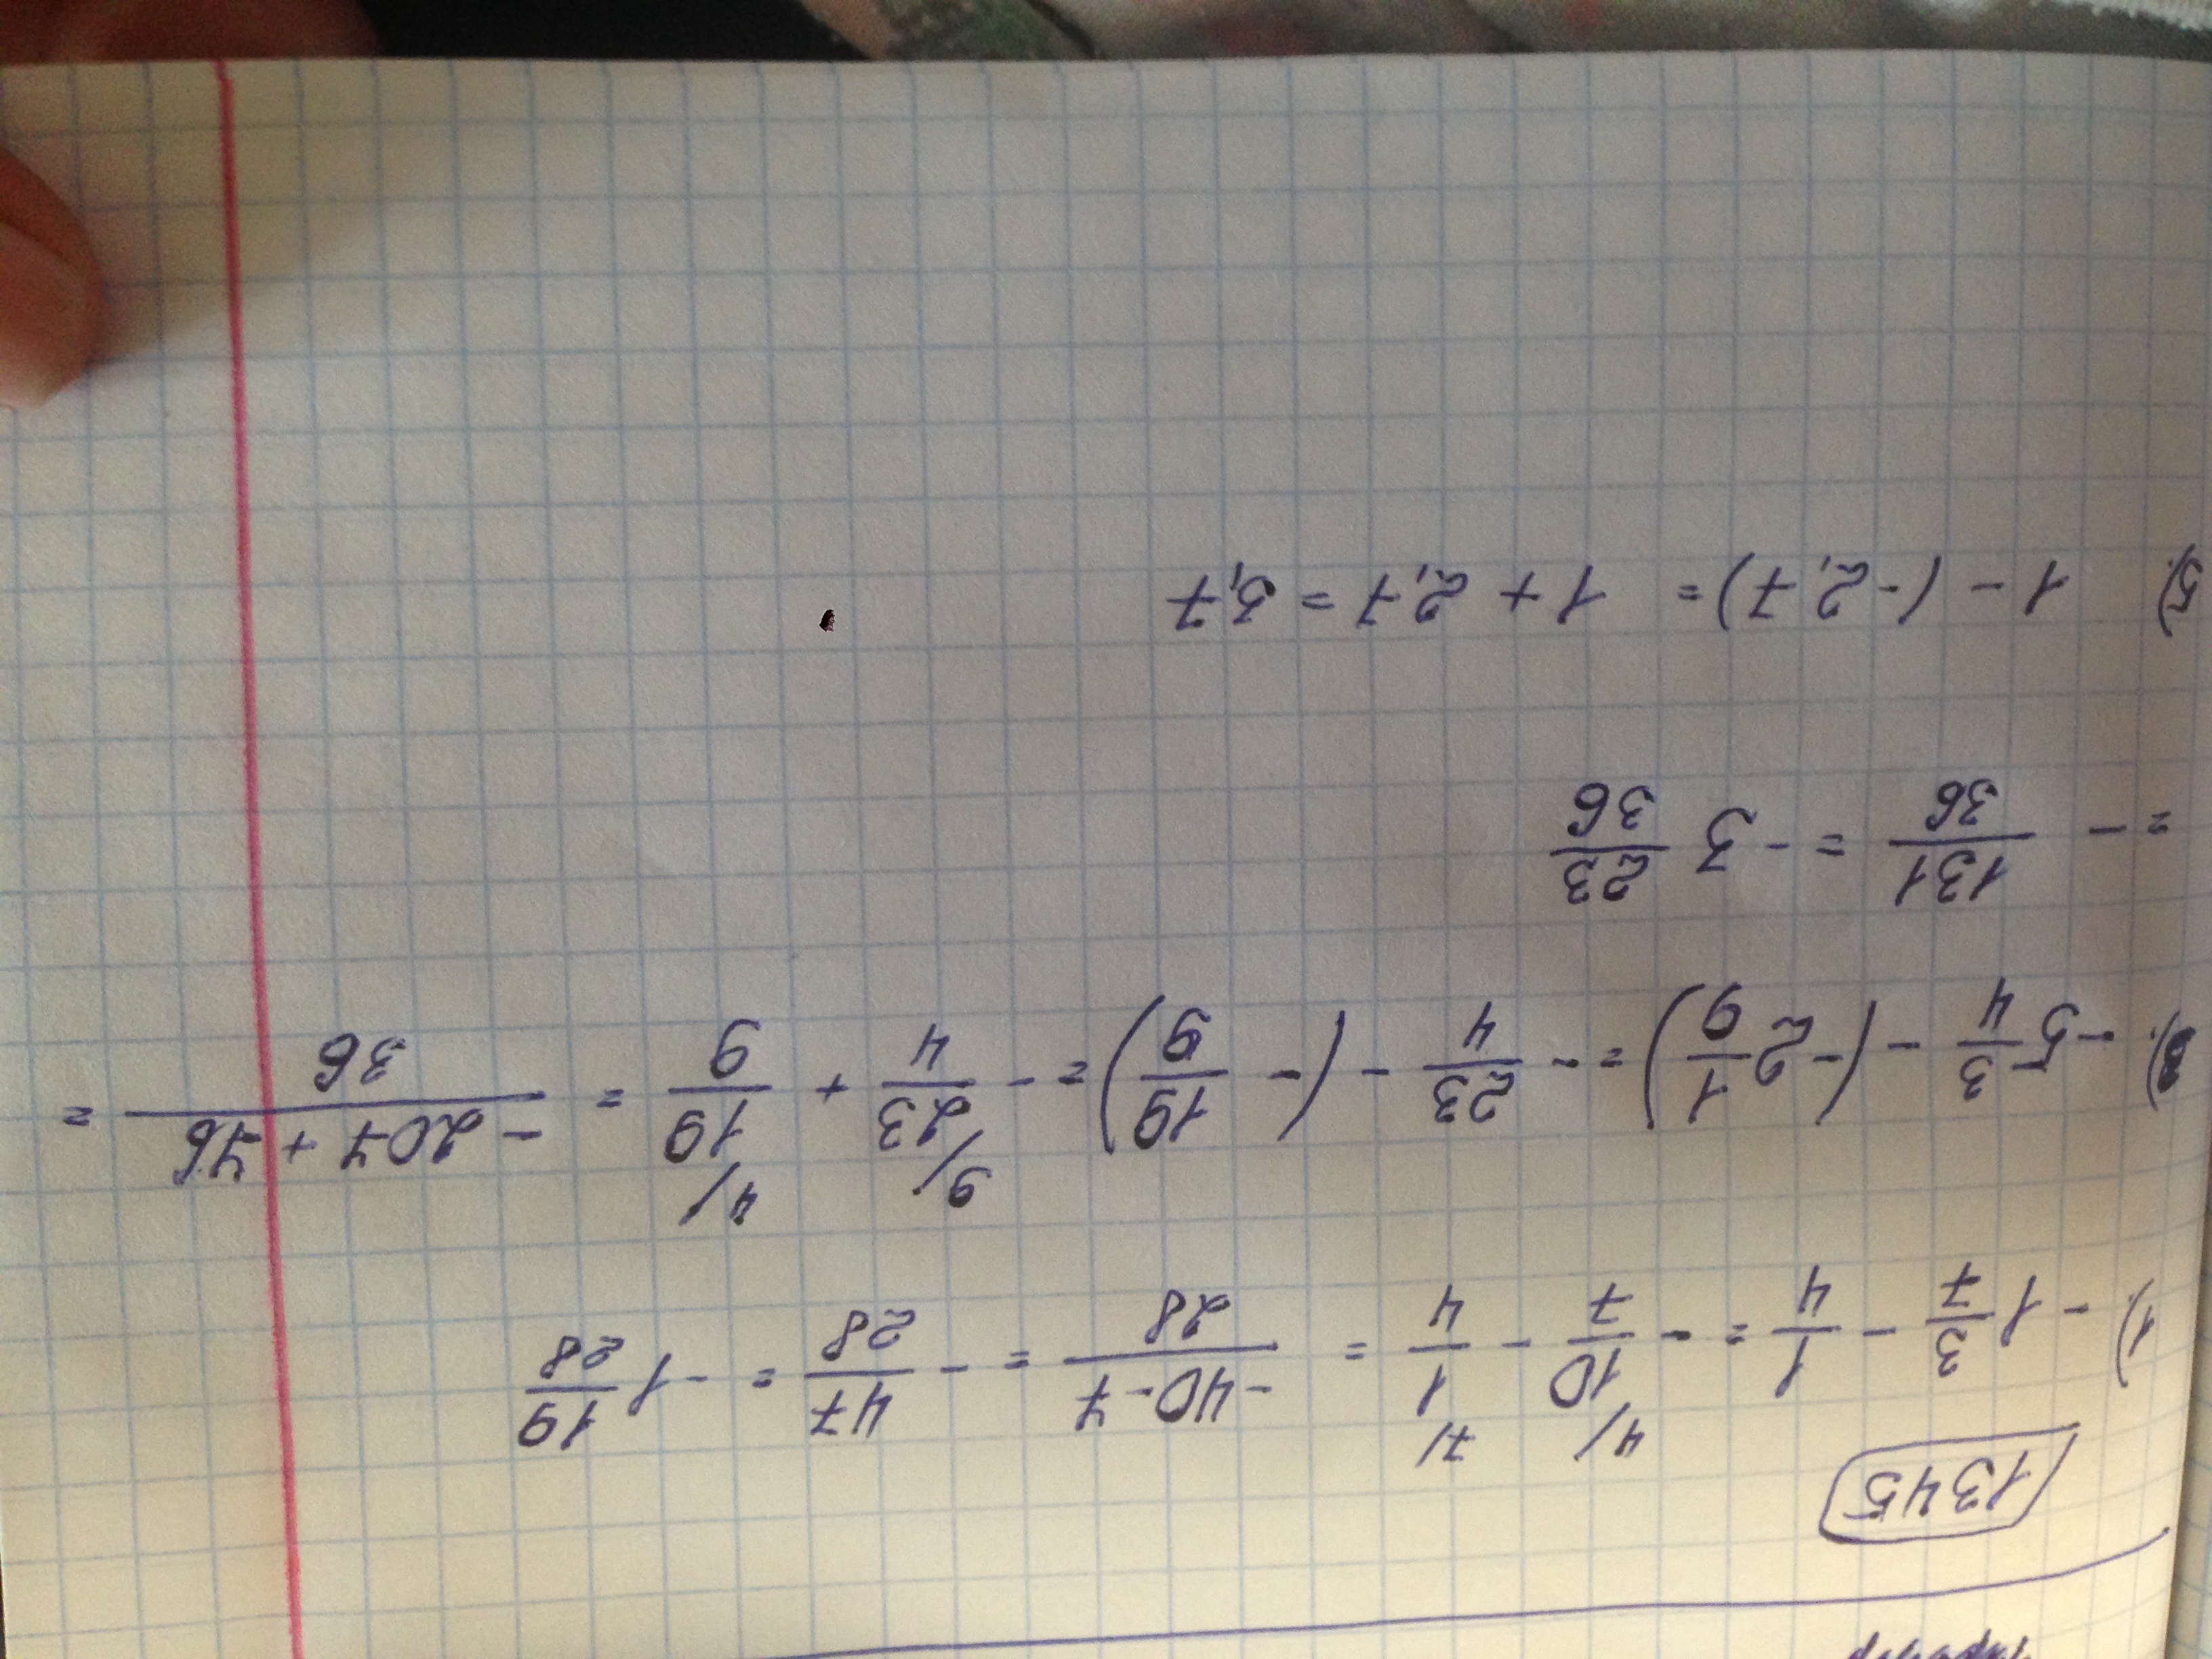 1345
1). - 1 3/7 - 1/4 = - 4/ 10/7 - 7/ 1/4 = (-40-7)/28 = - 47/28 = - 1 19/28
3). - 5 3/4 - (- 2 1/9) = - 23/4 - (- 19/9) = - 9/ 23/4 + 4/ 19/9 = (-207 + 76)/36 =
= - 131/36 = - 3 23/36
5). 1 - (-2,7) = 1 + 2,7 = 3,7